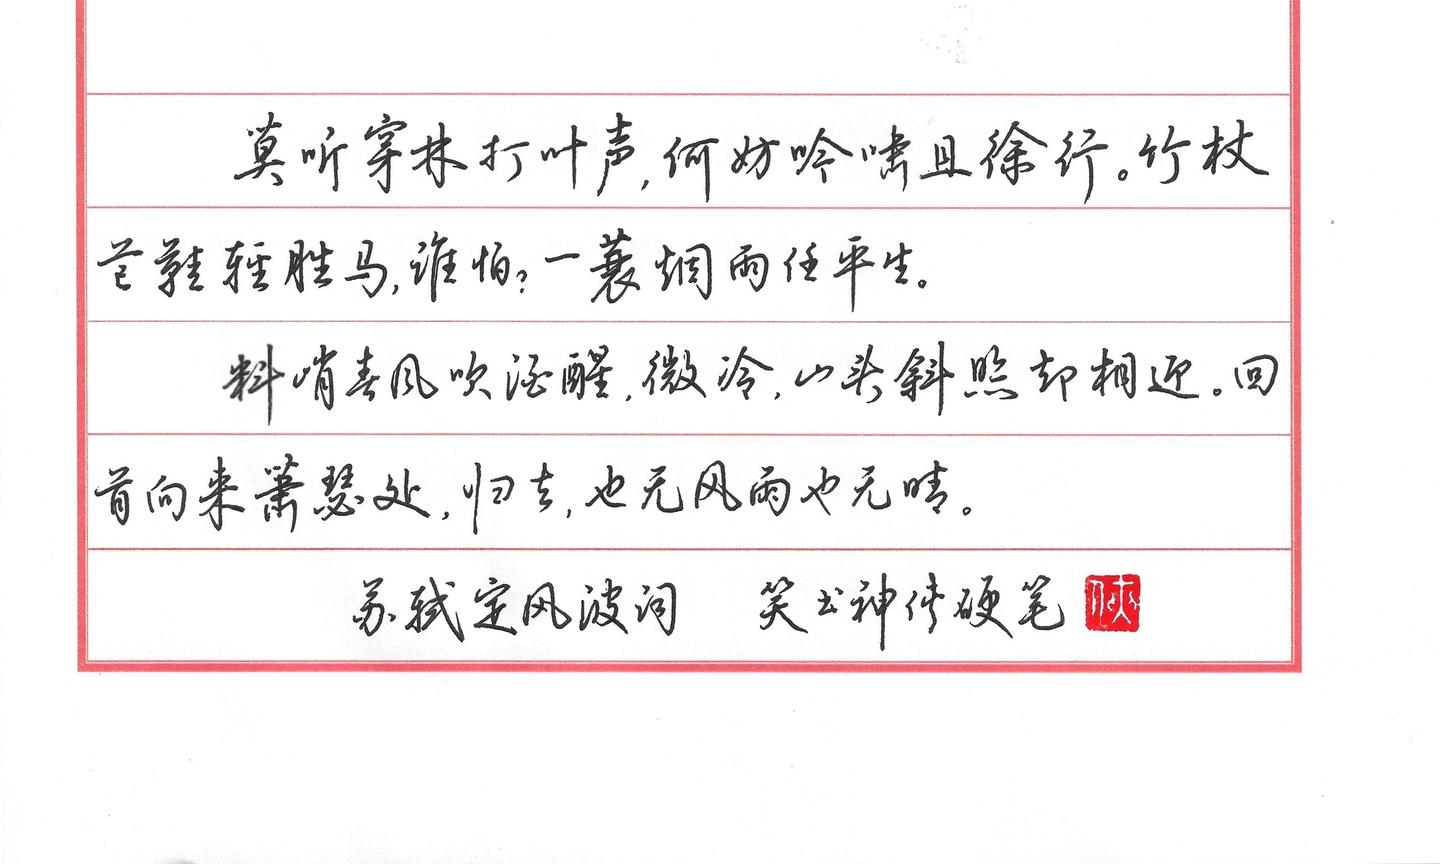 莫听穿林打叶声,何妨吟啸且徐行。竹杖
芒鞋轻胜马,谁怕?一蓑烟雨任平生。
料峭春风吹酒醒,微冷,山头斜照却相迎。回
首向来萧瑟处,归去,也无风雨也无晴。
苏轼定风波词 笑书神侠硬笔
侠